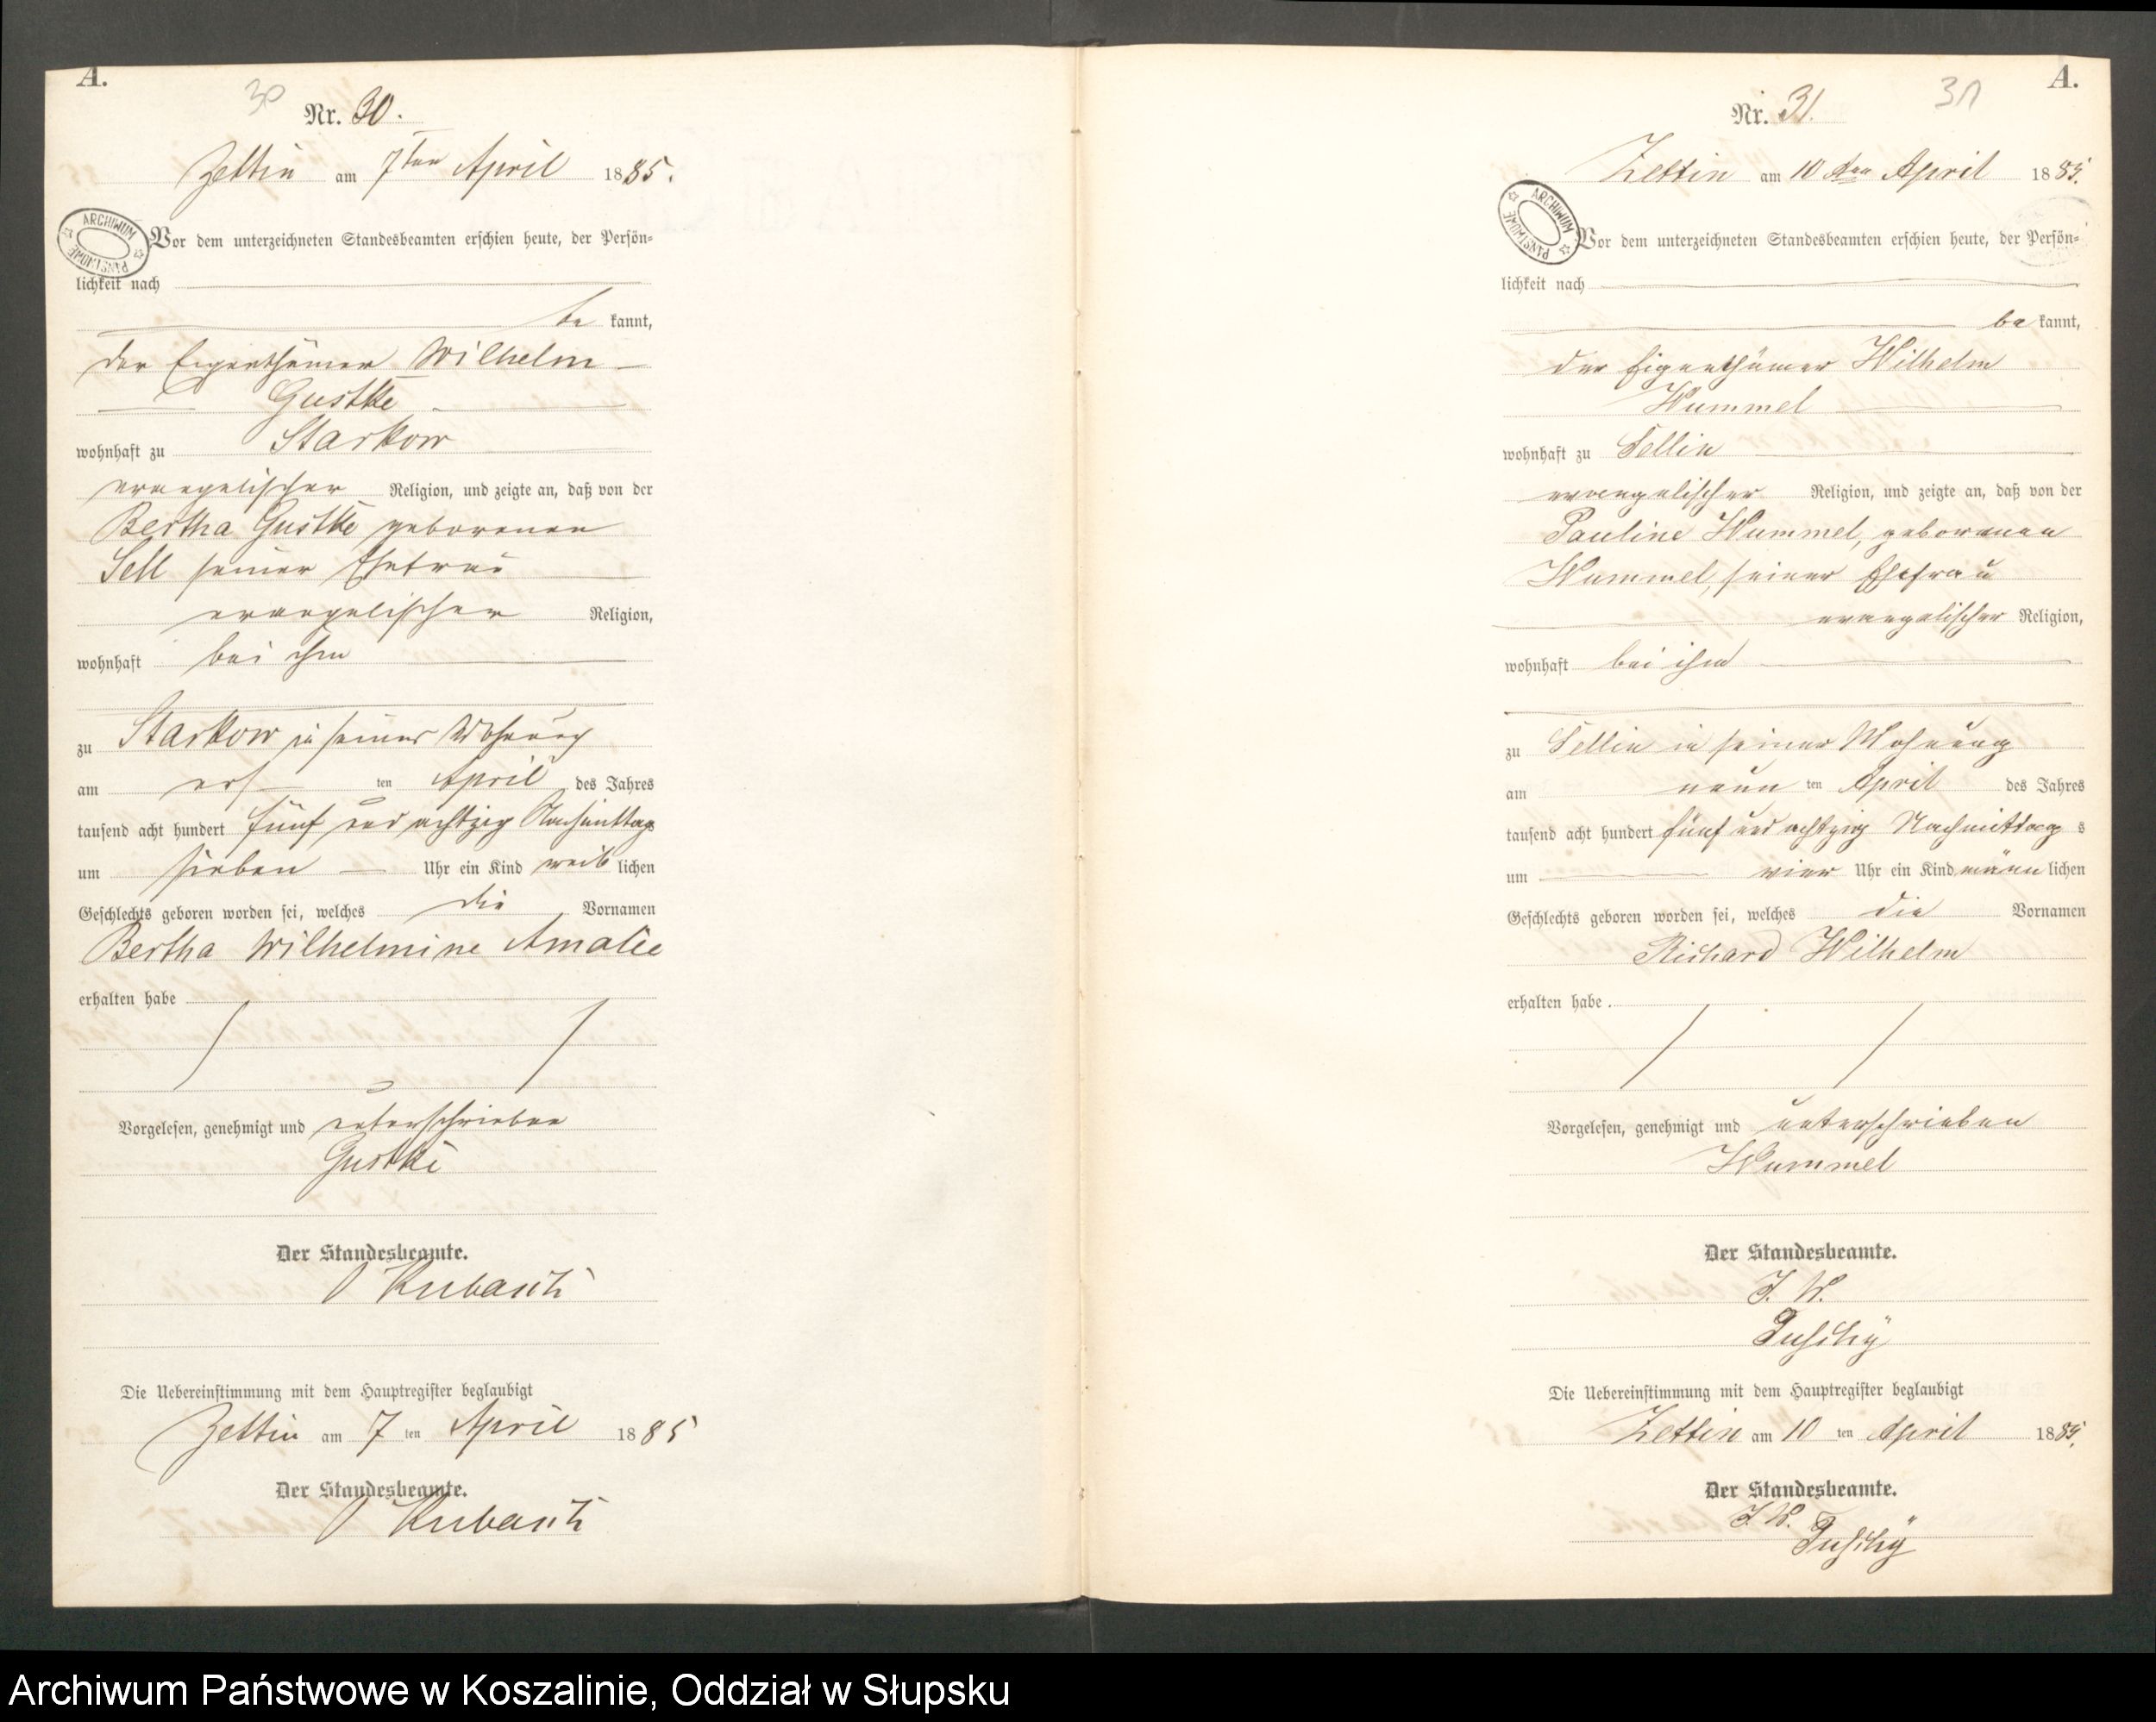 A.
30
Nr. 30.
Zettin am 7ten April 1885.
ARCHIWUM PAŃSTWOWE
Vor dem unterzeichneten Standesbeamten erschien heute, der Persön=
lichkeit nach
be kannt,
der Eigenthümer Wilhelm
Gustke
wohnhaft zu Starkow
evangelischer Religion, und zeigte an, daß von der
Bertha Gustke geborenen
Sell seiner Ehefrau
evangelischer Religion,
wohnhaft bei ihm
zu Starkow in seiner Wohnung
am ers ten April des Jahres
tausend acht hundert fünf und achtzig Nachmittags
um sieben Uhr ein Kind weib lichen
Geschlechts geboren worden sei, welches die Vornamen
Bertha Wilhelmine Amalie
erhalten habe
Vorgelesen, genehmigt und unterschrieben
Gustke
Der Standesbeamte.
Die Uebereinstimmung mit dem Hauptregister beglaubigt
Zettin am 7 ten April 1885
Der Standesbeamte.
A.
31
Nr. 31.
Zettin am 10 ten April 1885.
ARCHIWUM PAŃSTWOWE
Vor dem unterzeichneten Standesbeamten erschien heute, der Persön=
lichkeit nach
be kannt,
der Eigenthümer Wilhelm
Wummel
wohnhaft zu Sellin
evangelischer Religion, und zeigte an, daß von der
Pauline Wummel, geborenen
Wummel, seiner Ehefrau
evangelischer Religion,
wohnhaft bei ihm
zu Sellin in seiner Wohnung
am neun ten April des Jahres
tausend acht hundert fünf und achtzig Nachmittag s
um vier Uhr ein Kind männ lichen
Geschlechts geboren worden sei, welches die Vornamen
Richard Wilhelm
erhalten habe.
Vorgelesen, genehmigt und unterschrieben
Wummel
Der Standesbeamte.
Die Uebereinstimmung mit dem Hauptregister beglaubigt
Zettin am 10 ten April 1885.
Der Standesbeamte.
Archiwum Państwowe w Koszalinie, Oddział w Słupsku